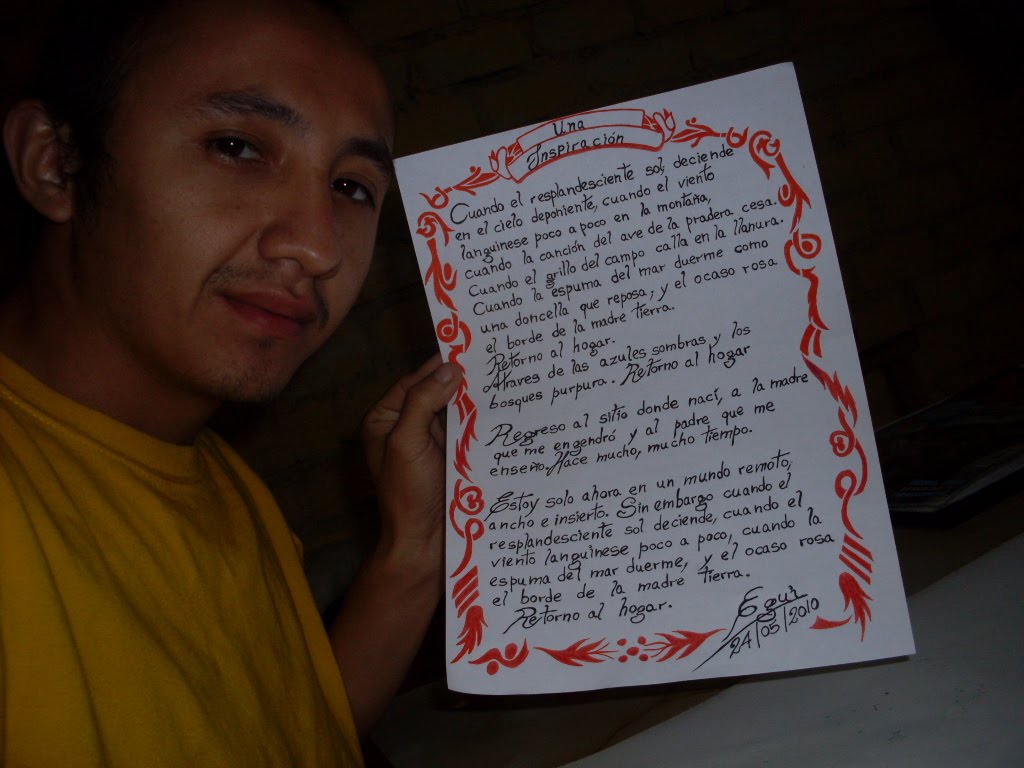 Una
Inspiración
Cuando el resplandesciente sol, deciende
en el cielo deponiente, cuando el viento
languinese poco a poco en la montaña,
cuando la canción del ave de la pradera cesa.
Cuando el grillo del campo calla en la llanura.
Cuando la espuma del mar duerme como
una doncella que reposa, y el ocaso rosa
el borde de la madre tierra.
Retorno al hogar.
Atraves de las azules sombras, y los
bosques purpura. Retorno al hogar
Regreso al sitio donde nací, a la madre
que me engendró y al padre que me
enseño. Hace mucho, mucho tiempo.
Estoy solo ahora en un mundo remoto,
ancho e insierto. Sin embargo cuando el
resplandesciente sol deciende, cuando el
viento languinese poco a poco, cuando la
espuma del mar duerme, y el ocaso rosa
el borde de la madre tierra.
Retorno al hogar.
24/05/2010